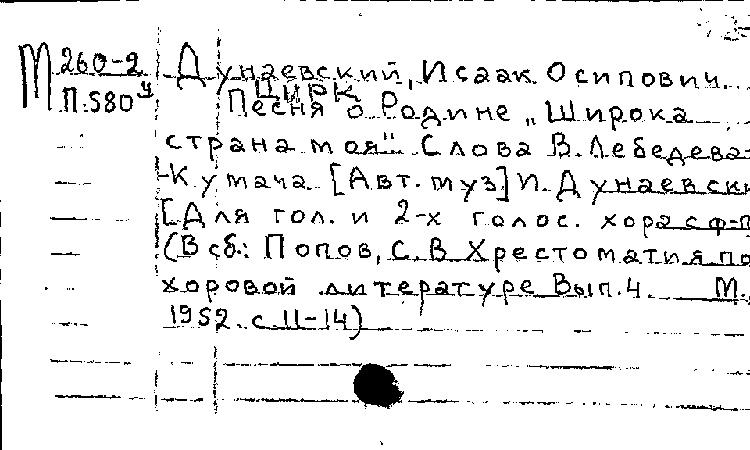 М 260-2 Дунаевский, Исаак Осипович.
П.580ч ЦИРК
Песня о Родине „Широка
страна моя". Слова В. Лебедева-
-Кумача. [Авт. муз] И. Дунаевски
[Для гол. и 2-х голос. хора с ф-п
(В сб.: Попов, С. В Хрестоматия по
хоровой литературе Вып. 4. М.,
1952. с. 11-14)